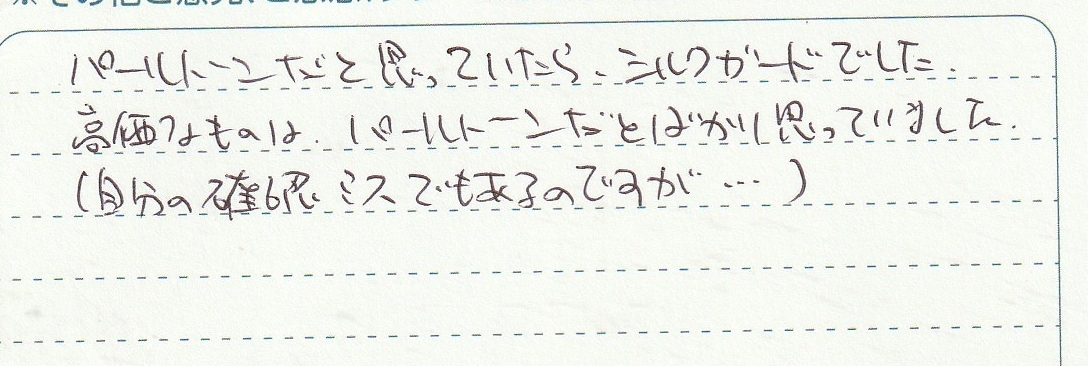 パールトーンだと思っていたら、シルクガードでした。
高価なものは、パールトーンだとばかり思っていました。
(自分の確認ミスでもあるのですが…)